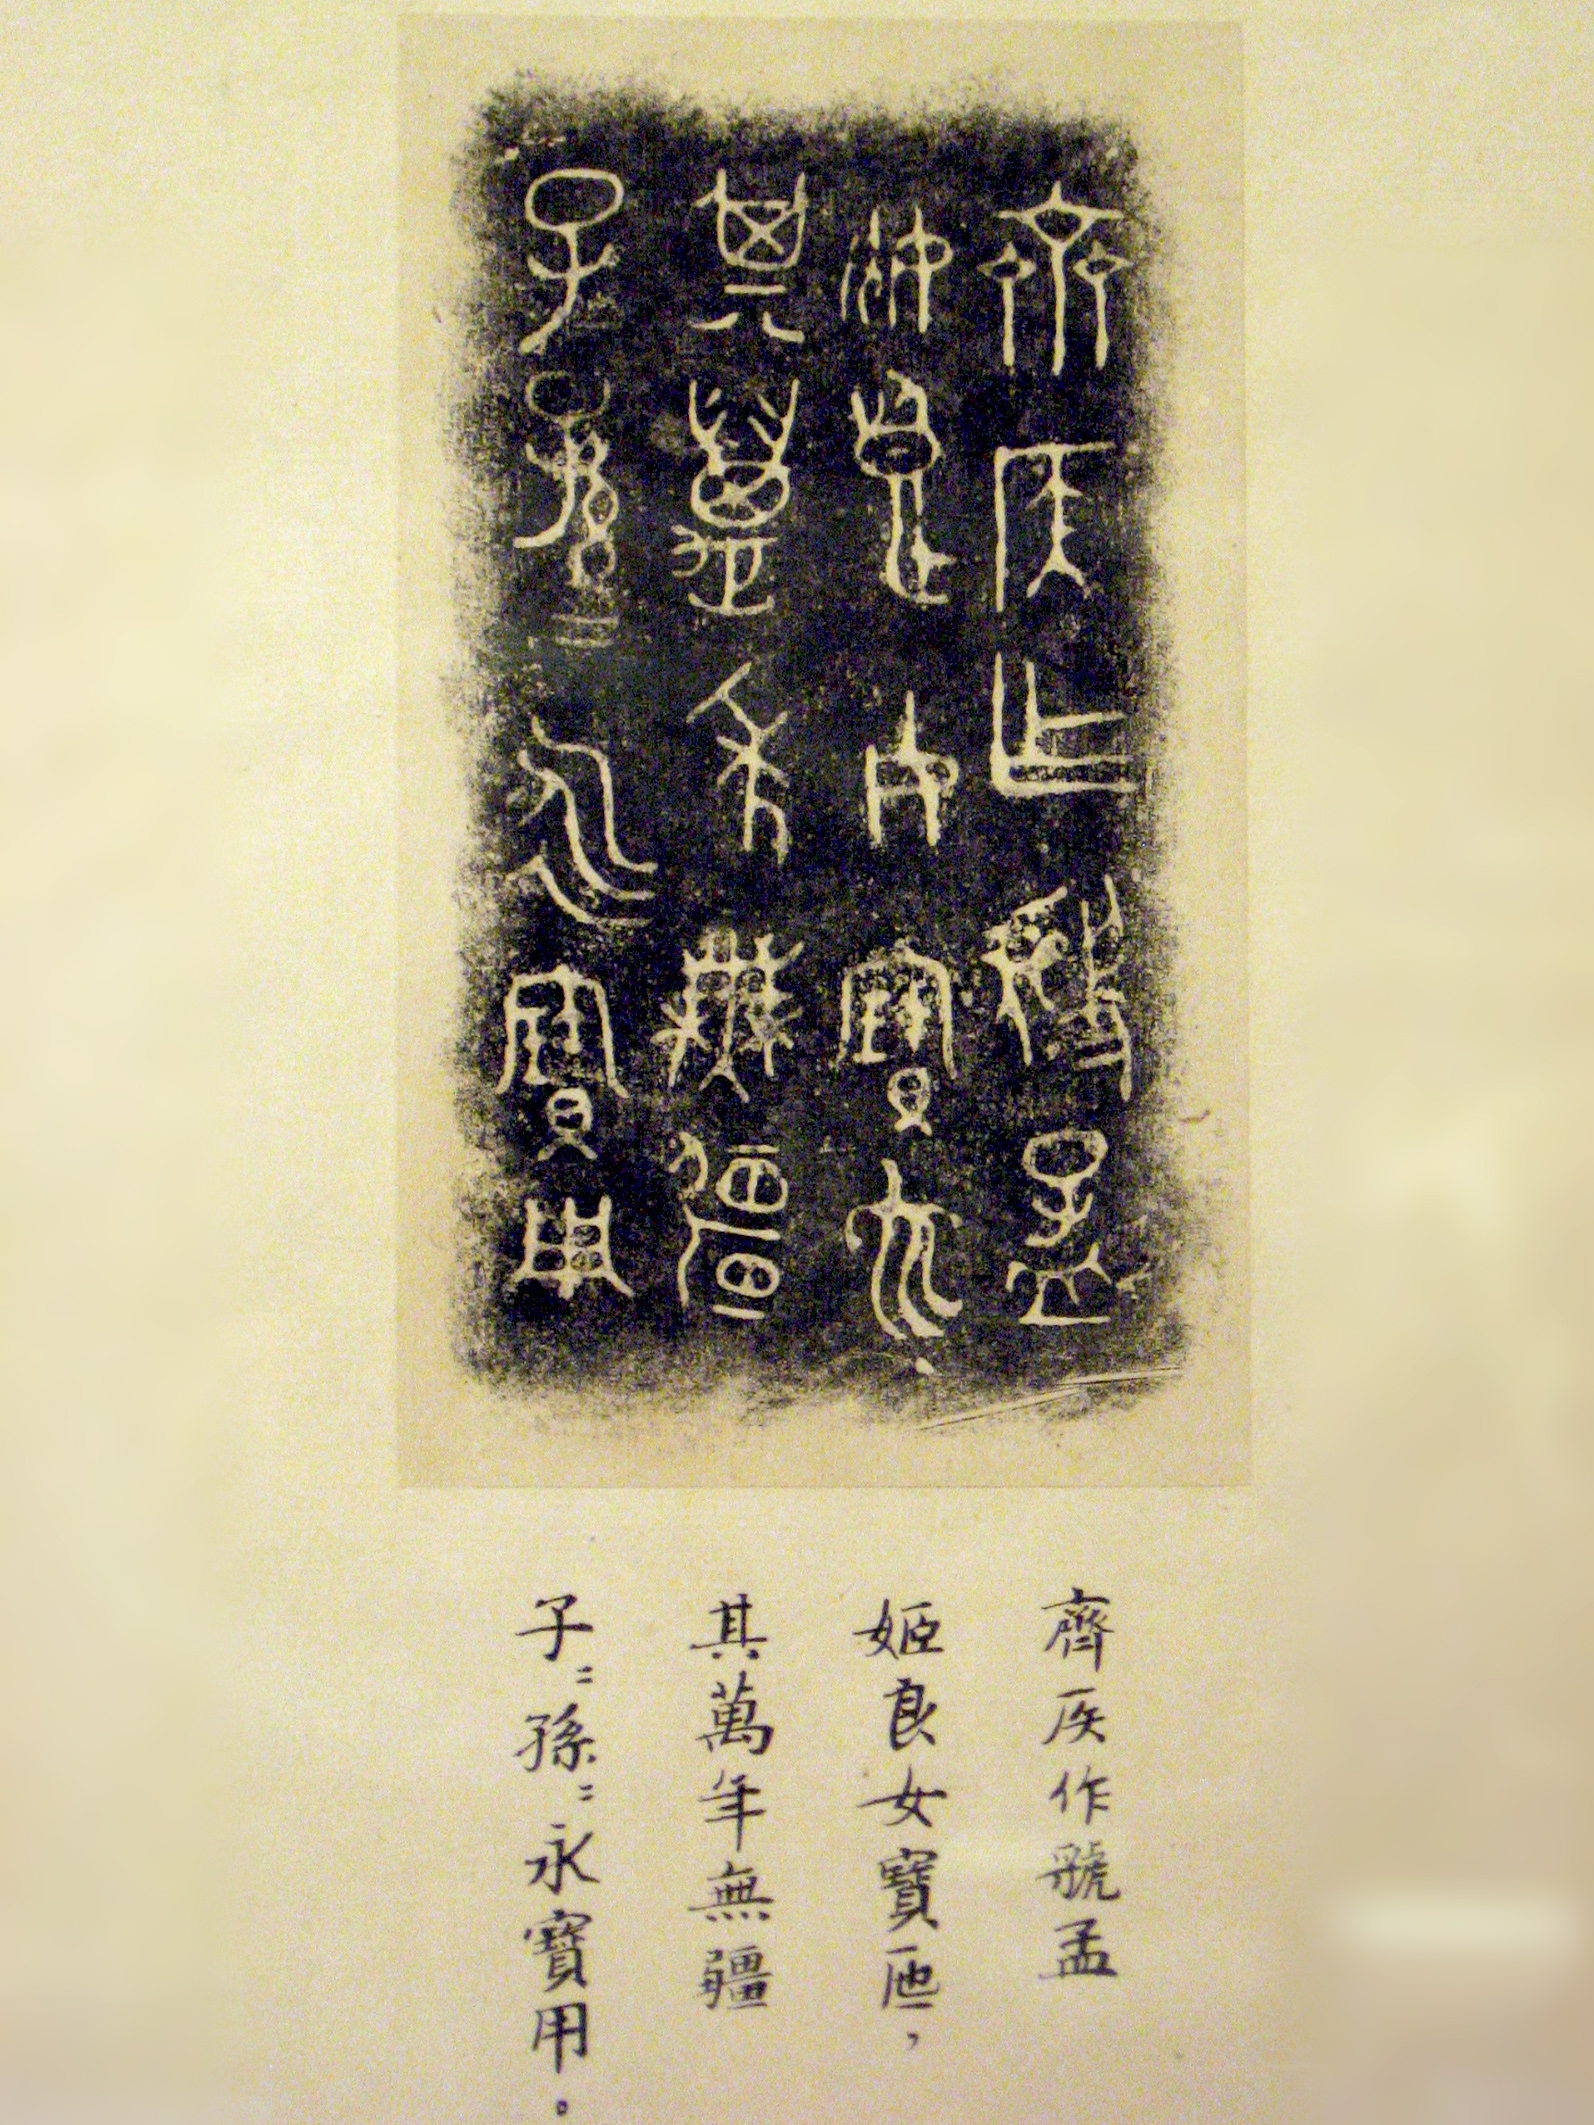 齊侯作虢孟
姬良女寶匜，
其萬年無疆
子＝孫＝永寶用。